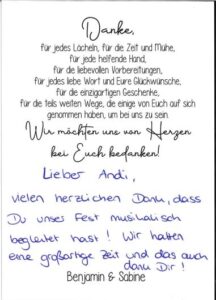 Danke,
für jedes Lächeln, für die Zeit und Mühe,
für jede helfende Hand,
für die liebevollen Vorbereitungen,
für jedes liebe Wort und Eure Glückwünsche,
für die einzigartigen Geschenke,
für die teils weiten Wege, die einige von Euch auf sich
genommen haben, um bei uns zu sein.
Wir möchten uns von Herzen
bei Euch bedanken!
Lieber Andi,
vielen herzlichen Dank, dass
Du unser Fest musikalisch
begleitet hast! Wir hatten
eine großartige Zeit und das auch
dank Dir!
Benjamin & Sabine